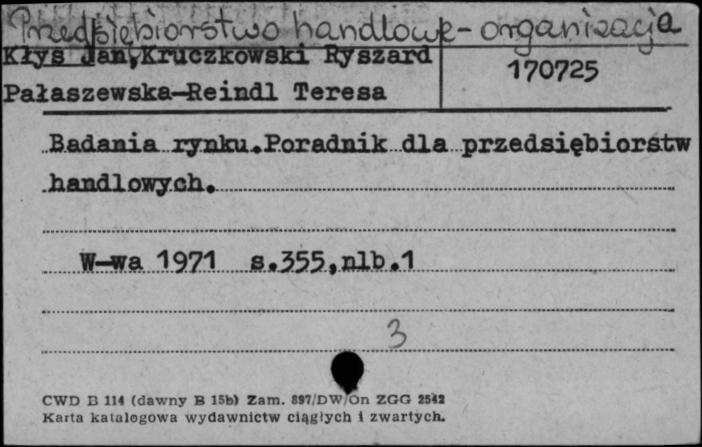 Przedsiębiorstwo handlowe - organizacja
Kłys Jan,Kruczkowski Ryszard
170725
Pałaszewska-Reindl Teresa
Badania rynku.Poradnik dla przedsiębiorstw
handlowych.
W-wa 1971 s.355,nlb.1
3
CWD B 114 (dawny B 15b) Zam. 897/DW/On ZGG 2542
Karta katalogowa wydawnictw ciągłych i zwartych.